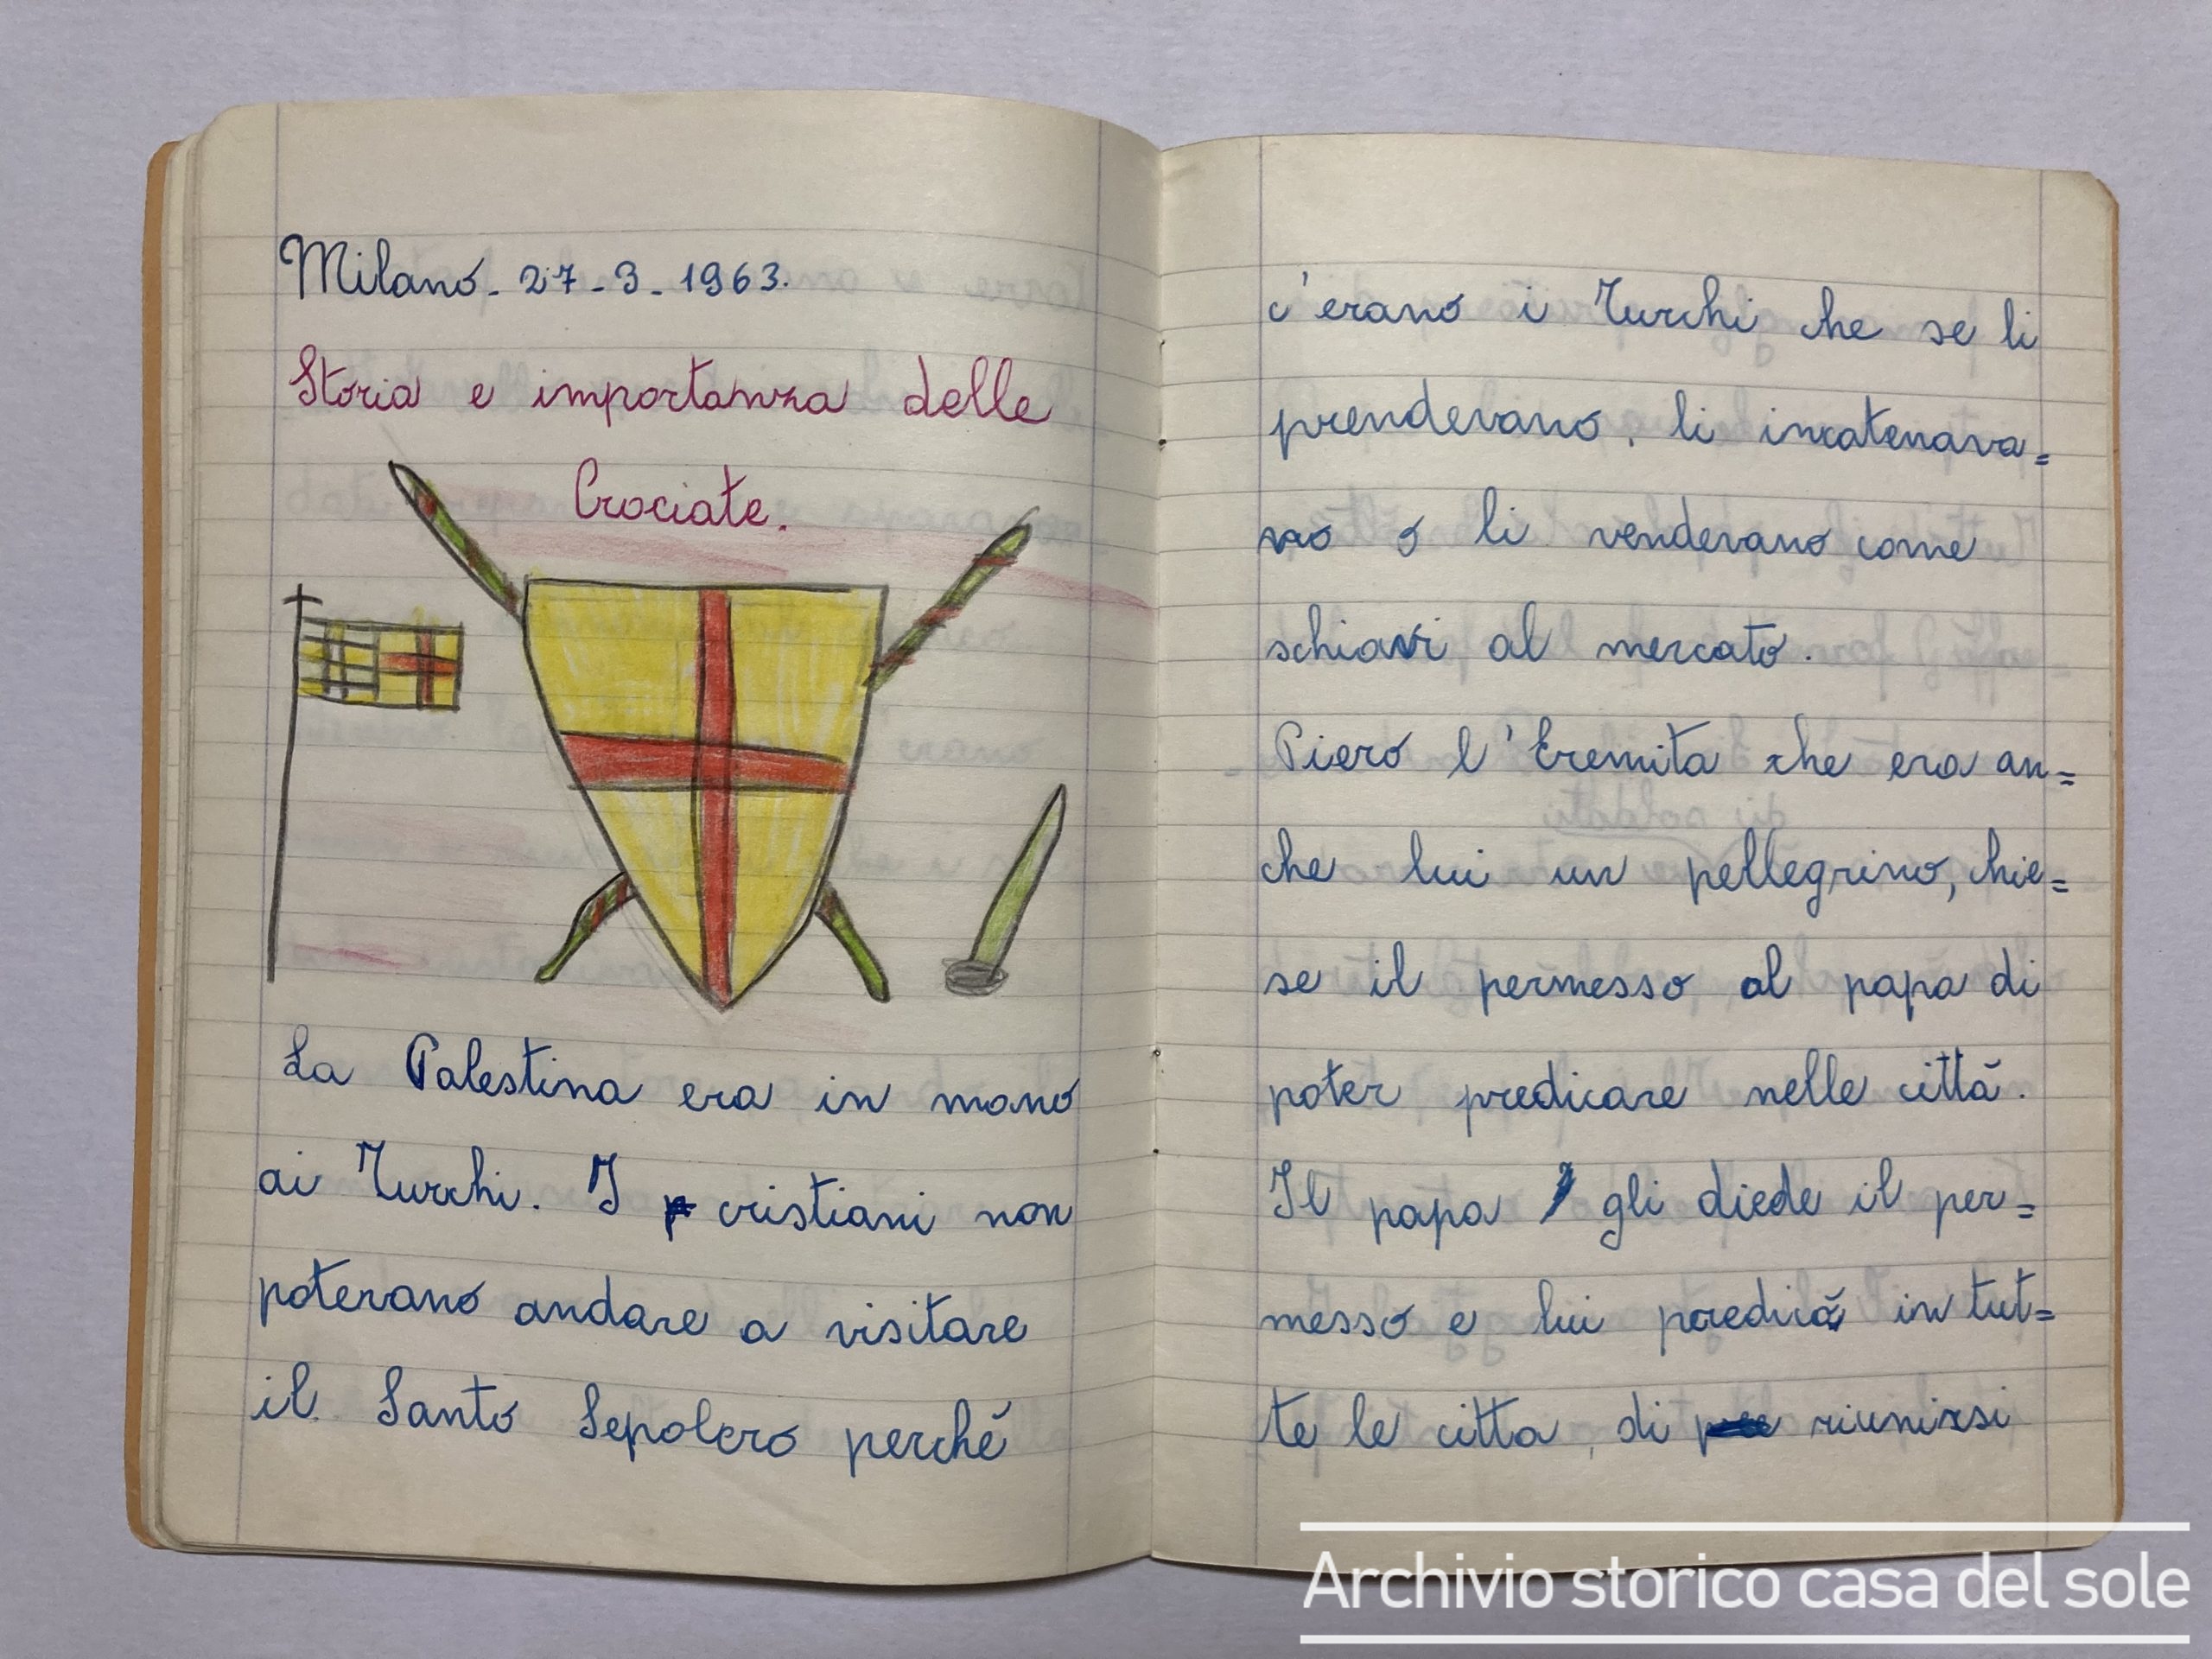 Milano - 27 - 3 - 1963.
Storia e importanza delle
Crociate.
La Palestina era in mano
ai Turchi. I cristiani non
potevano andare a visitare
il Santo Sepolcro perché
c'erano i Turchi che se li
prendevano, li incatenava=
no o li vendevano come
schiavi al mercato.
Piero l'Eremita che era an=
che lui un pellegrino, chie=
se il permesso al papa di
poter predicare nelle città.
Il papa gli diede il per=
messo e lui predicò in tut=
te le citta, di riunirsi
Archivio storico casa del sole